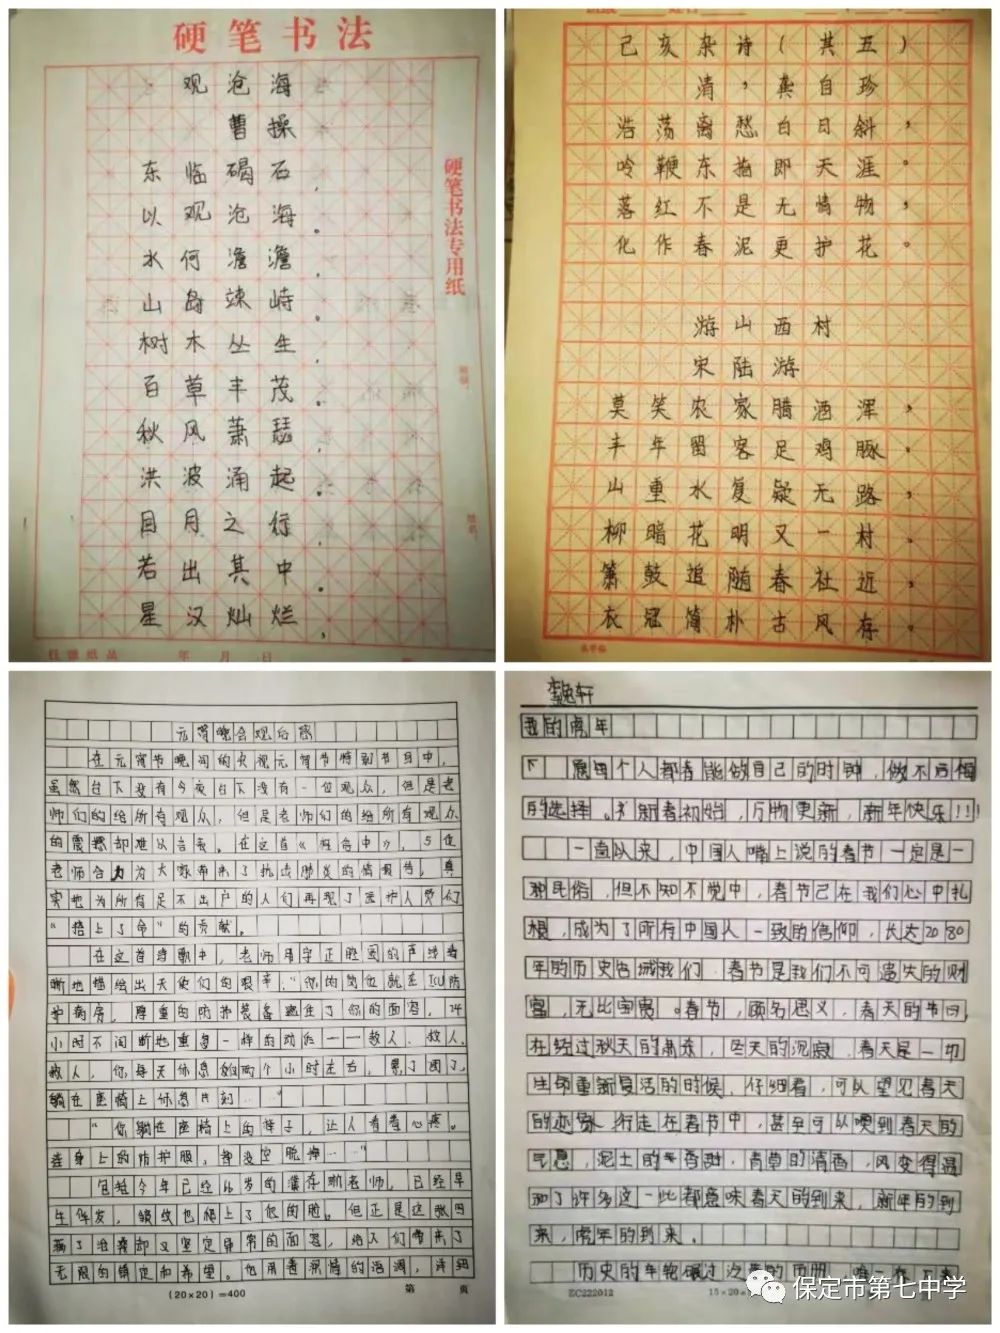 硬笔书法
观沧海
曹操
东临碣石，
以观沧海。
水何澹澹，
山岛竦峙。
树木丛生，
百草丰茂。
秋风萧瑟，
洪波涌起。
日月之行，
若出其中。
星汉灿烂，
硬笔书法专用纸
年 月 日
己亥杂诗（其五）
清，龚自珍
浩荡离愁白日斜，
吟鞭东指即天涯。
落红不是无情物，
化作春泥更护花。
游山西村
宋陆游
莫笑农家腊酒浑，
丰年留客足鸡豚。
山重水复疑无路，
柳暗花明又一村。
箫鼓追随春社近，
衣冠简朴古风存。
元宵晚会观后感
在元宵节晚间的央视元宵节特别节目中，
虽然台下没有今夜台下没有一位观众，但是老
师们的给所有观众，但是老师们的给所有观众
的震撼却难以言表。在这首《 》，5位
老师合力为大家带来了抗击肺炎的情报告，真
实地为所有足不出户的人们再现了医护人员们
“搭上了命”的贡献。
在这首诗歌中，老师用字正腔圆的声
晰地描绘出天使们的艰辛，“你的岗位就在ICU防
护病房，厚重的防护装备遮住了你的面容，24
小时不间断地重复一样的动作——救人、救人、
救人，你每天休息 两个小时左右，累了困了，
躺在座椅上休息片刻……”
“你躺在座椅上的样子，让人看着心疼。
连身上的防护服，都没空脱掉……”
包括今年已经 岁的濮存昕老师，已经早
生华发，皱纹也爬上了他的脸。但正是这张
满了沧桑却又坚定异常的面容，给人们带来了
无限的镇定和希望。他用着深情的语调，详细
(20×20)=400 第 页
我的虎年
愿每个人都能做自己的时钟，做不后悔
的选择。新春初始，万物更新，新年快乐!!!
一直以来，中国人嘴上说的春节一定是一
种民俗，但不知不觉中，春节已在我们心中扎
根，成为了所有中国人一致的信仰，长达2080
年的历史告诫我们，春节是我们不可遗失的财
富，无比宝贵。春节，顾名思义，春天的节日，
在经过秋天的萧条，冬天的沉寂，春天是一切
生命重新复活的时候，仔细看，可以望见春天
的 ，行走在春节中，甚至可以嗅到春天的
气息，泥土的 香甜，青草的清香，风变得温
和了许多这一些都意味春天的到来，新年的到
来，虎年的到来。
历史的车轮碾过 的页册，
EC222012 15×20=
保定市第七中学